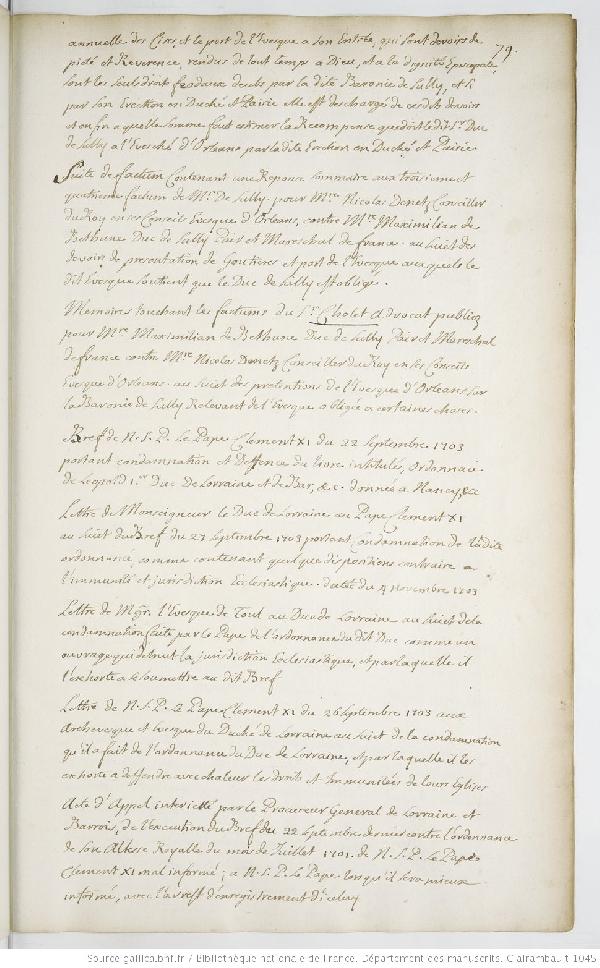 79.
annuelle des Cires, et le port de l'Evesque a son Entrée, qui sont devoirs de
pieté et Reverence, rendus de tout temps a Dieu, et a la dignité Episcopale,
sont les seuls droit feodaux deubs par la dite Baronie de Sully, et si
par son Erection en Duché et Pairie elle est deschargé de cesdits devoirs
et enfin a quelle somme faut estimer la Recompense que doit le dit Sr. Duc
de Sully a l'Evesché d'Orleans par la dite Erection en Duché et Pairie
Suite de factum Contenant une Reponse sommaire aux troisieme et
quatrieme factum de Mr. De Sully. pour Mre. Nicolas Denetz Conseiller
du Roy en ses Conseils Evesque d'Orleans, contre Mre. Maximilian de
Bethune Duc de Sully Pair et Mareschal de france. au sujet des
devoirs de presentation de Goutieres et port de l'Evesque ausquels le
dit Evesque soutient que le Duc de Sully est obligé.
Memoires touchant les factums du Sr. Cholet Advocat publiez
pour Mre. Maximilian de Bethune Duc de Sully Pair et Mareschal
de france contre Mre. Nicolas Denetz Conseiller du Roy en ses Conseils
Evesque d'Orleans. au sujet des pretentions de l'Evesque d'Orleans sur
la Baronie de Sully Relevant de l'Evesque obligée a certaines choses.
Bref de N. S. P. le Pape Clement XI du 22 Septembre 1703
portant condamnation et Deffence du livre intitulés, ordonnance
de Leopold 1er. Duc De Lorraine et de Bar, &c. donnée a Nancy, &c
Lettre de Monseigneur le Duc de Lorraine au Pape Clement XI
au sujet du Bref du 27 Septembre 1703 portant condamnation de ladite
ordonnance, comme contenant quelque dispositions contraire a
l'immunité et jurisdiction Ecclesiastique. datée du 4 Novembre 1703
Lettre de Mgr. l'Evesque de Toul au Duc de Lorraine au sujet de la
condamnation faite par le Pape de l'ordonnance du dit Duc comme un
ouvrage qui detruit la jurisdiction Ecclesiastique, et par laquelle il
l'exhorte a se soumettre au dit Bref
Lettre de N. S. P. le Pape Clement XI du 26 Septembre 1703 aux
Archevesque et Evesque du Duché de Lorraine au sujet de la condamnation
qu'il a fait de l'ordonnance du Duc de Lorraine, et par laquelle il les
exhorte a deffendre avec chaleur les droits et Immunitées de leurs Eglises
Acte d'Appel interietté par le Procureur General de Lorraine et
Barrois, de l'execution du Bref du 22 Septembre dernier contre l'ordonnance
de son Altesse Royalle du mois de Juillet 1701. de N. S. P. le Pape
Clement XI mal informé; a N. S. P. le Pape lorsqu'il sera mieux
informé, avec l'arrest d'enregistrement d'iceluy
Source gallica.bnf.fr / Bibliothèque nationale de France. Département des manuscrits. Clairambault 1045